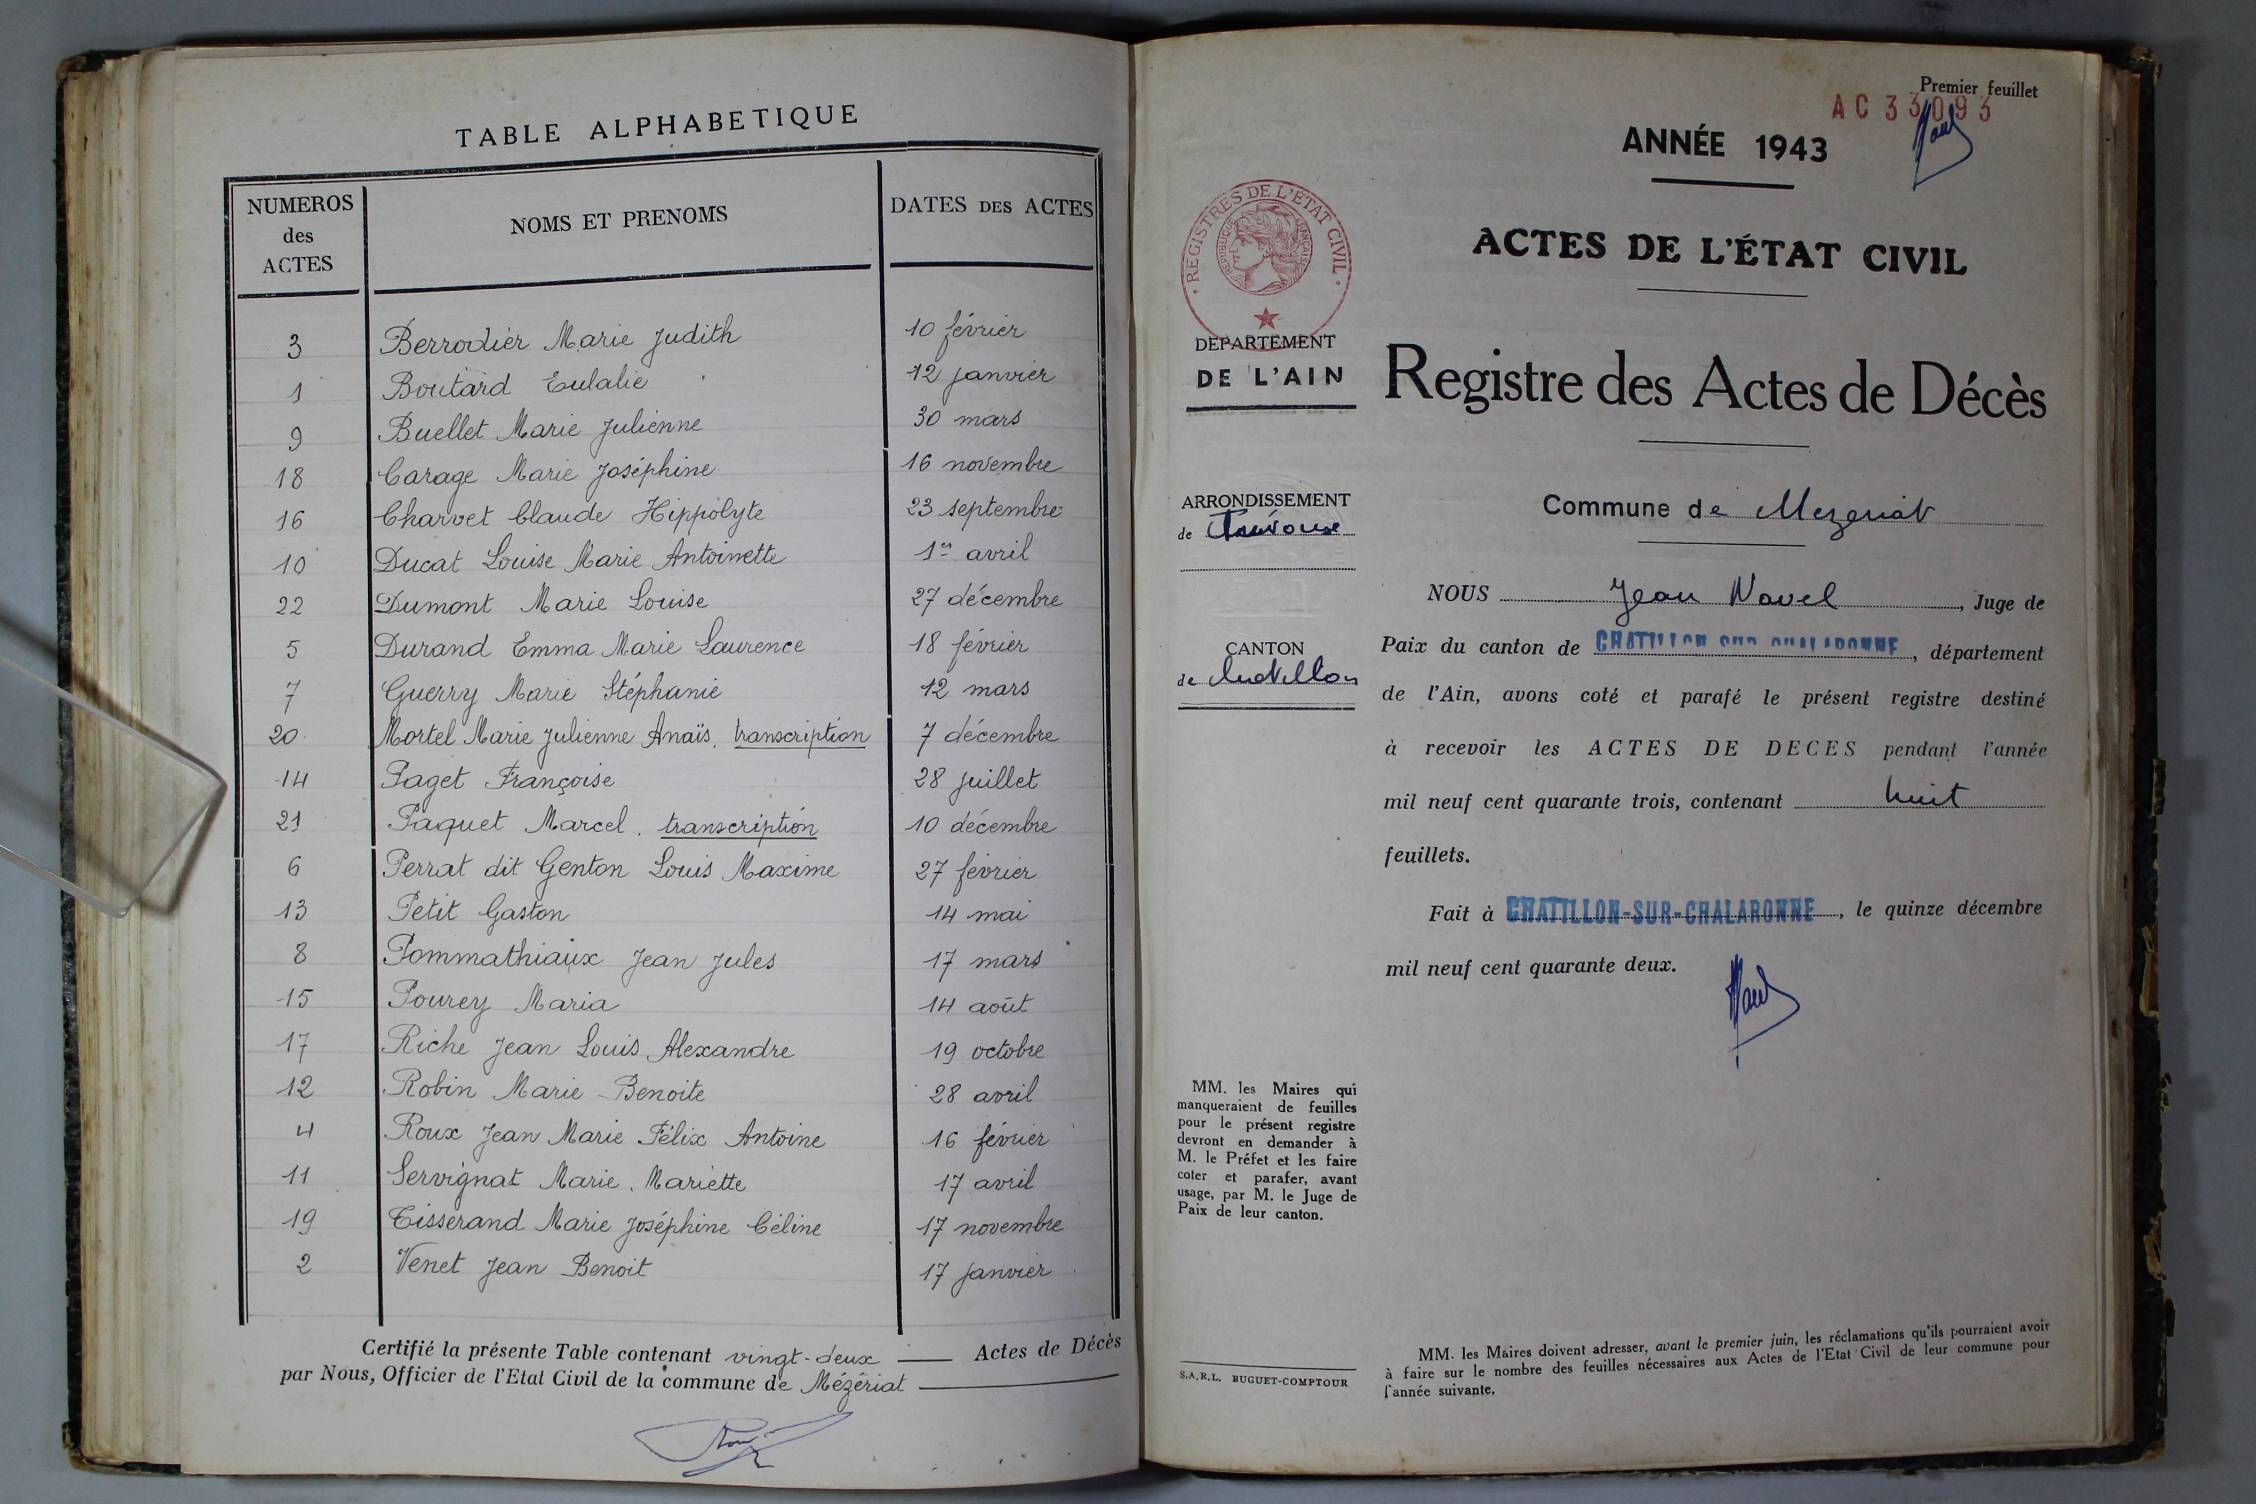 TABLE ALPHABETIQUE
NUMEROS
des
ACTES
NOMS ET PRENOMS
DATES DES ACTES
3 Berrodier Marie Judith 10 février
1 Boutard Eulalie 12 janvier
9 Buellet Marie Julienne 30 mars
18 Carage Marie Joséphine 16 novembre
16 Charvet Claude Hippolyte 23 septembre
10 Ducat Louise Marie Antoinette 1er avril
22 Dumont Marie Louise 27 décembre
5 Durand Emma Marie Laurence 18 février
7 Guerry Marie Stéphanie 12 mars
20 Mortel Marie Julienne Anaïs. transcription 7 décembre
14 Paget Françoise 28 juillet
21 Paquet Marcel. transcription 10 décembre
6 Perrat dit Genton Louis Maxime 27 février
13 Petit Gaston 14 mai
8 Pommathiaux Jean Jules 17 mars
15 Pourey Maria 14 août
17 Riche Jean Louis Alexandre 19 octobre
12 Robin Marie Benoite 28 avril
4 Roux Jean Marie Félix Antoine 16 février
11 Servignat Marie Mariette 17 avril
19 Tisserand Marie Joséphine Céline 17 novembre
2 Venet Jean Benoit 17 janvier
Certifié la présente Table contenant vingt-deux Actes de Décès
par Nous, Officier de l'Etat Civil de la commune de Mézériat
Premier feuillet
AC 33093
ANNÉE 1943
REGISTRES DE L'ÉTAT CIVIL
RÉPUBLIQUE FRANÇAISE
ACTES DE L'ÉTAT CIVIL
DÉPARTEMENT
DE L'AIN
Registre des Actes de Décès
ARRONDISSEMENT
de
Commune de Mezeriat
NOUS Jean Navel, Juge de
CANTON
de Chatillon
Paix du canton de CHATILLON-SUR-CHALARONNE, département
de l'Ain, avons coté et parafé le présent registre destiné
à recevoir les ACTES DE DECES pendant l'année
mil neuf cent quarante trois, contenant huit
feuillets.
Fait à CHATILLON-SUR-CHALARONNE, le quinze décembre
mil neuf cent quarante deux.
MM. les Maires qui
manqueraient de feuilles
pour le présent registre
devront en demander à
M. le Préfet et les faire
coter et parafer, avant
usage, par M. le Juge de
Paix de leur canton.
S.A.R.L. BUGUET-COMPTOUR
MM. les Maires doivent adresser, avant le premier juin, les réclamations qu'ils pourraient avoir
à faire sur le nombre des feuilles nécessaires aux Actes de l'Etat Civil de leur commune pour
l'année suivante.